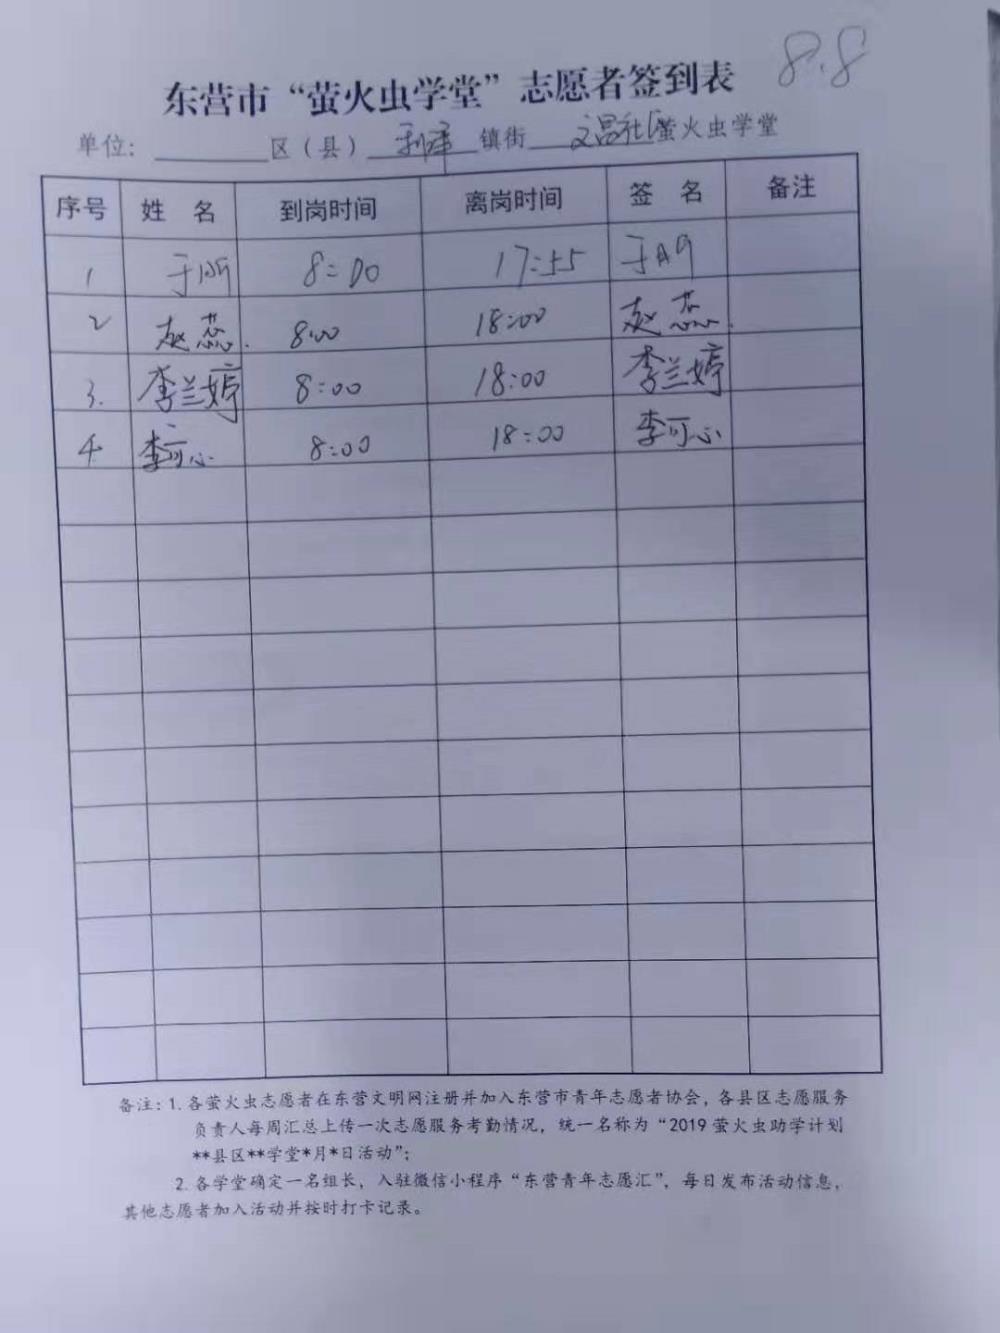 8.8
东营市“萤火虫学堂”志愿者签到表
单位：________区（县）利津 镇街 文昌社区萤火虫学堂
序号 姓 名 到岗时间 离岗时间 签 名 备注
1 于 8:00 17:55 于
2 赵蕊. 8:00 18:00 赵蕊.
3. 李兰婷 8:00 18:00 李兰婷
4 李可心 8:00 18:00 李可心
备注：1. 各萤火虫志愿者在东营文明网注册并加入东营市青年志愿者协会，各县区志愿服务
负责人每周汇总上传一次志愿服务考勤情况，统一名称为“2019 萤火虫助学计划
**县区**学堂*月*日活动”；
2. 各学堂确定一名组长，入驻微信小程序“东营青年志愿汇”，每日发布活动信息，
其他志愿者加入活动并按时打卡记录。